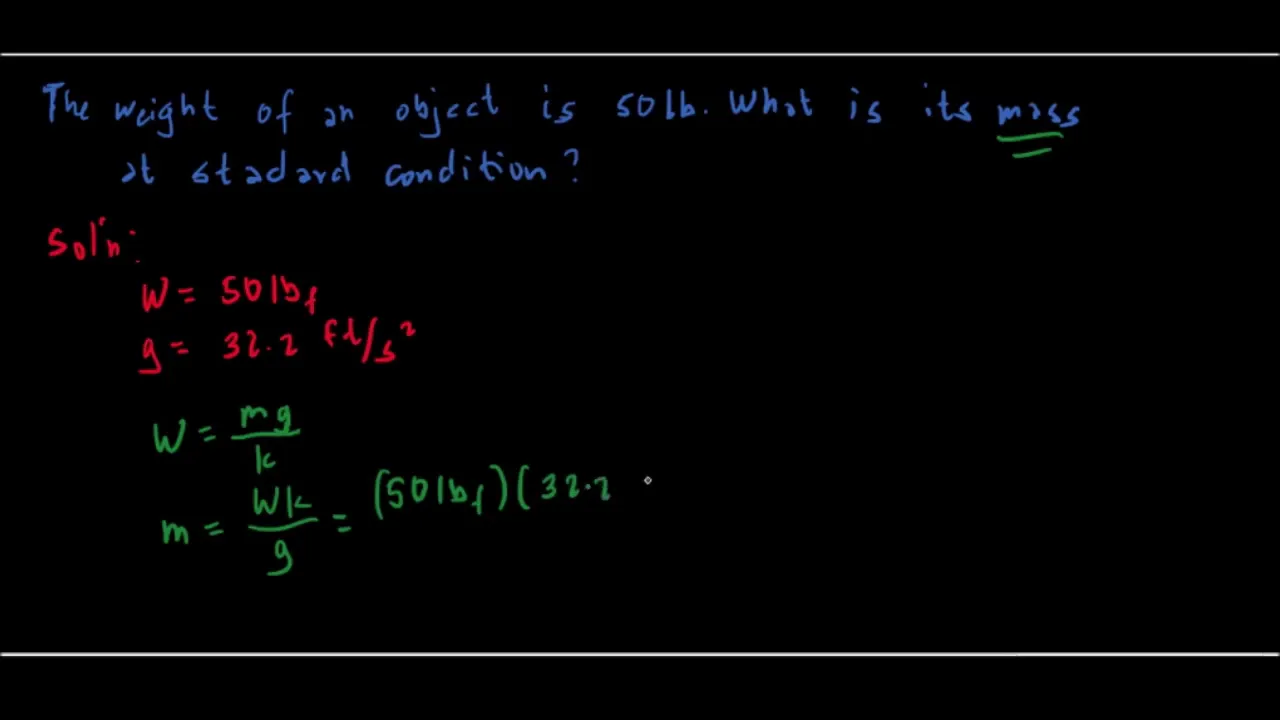 The weight of an object is 50lb. What is its mass
at stadard condition?
Sol'n:
W = 50lbf
g = 32.2 ft/s²
W = mg/k
m = Wk/g = (50lbf)(32.2